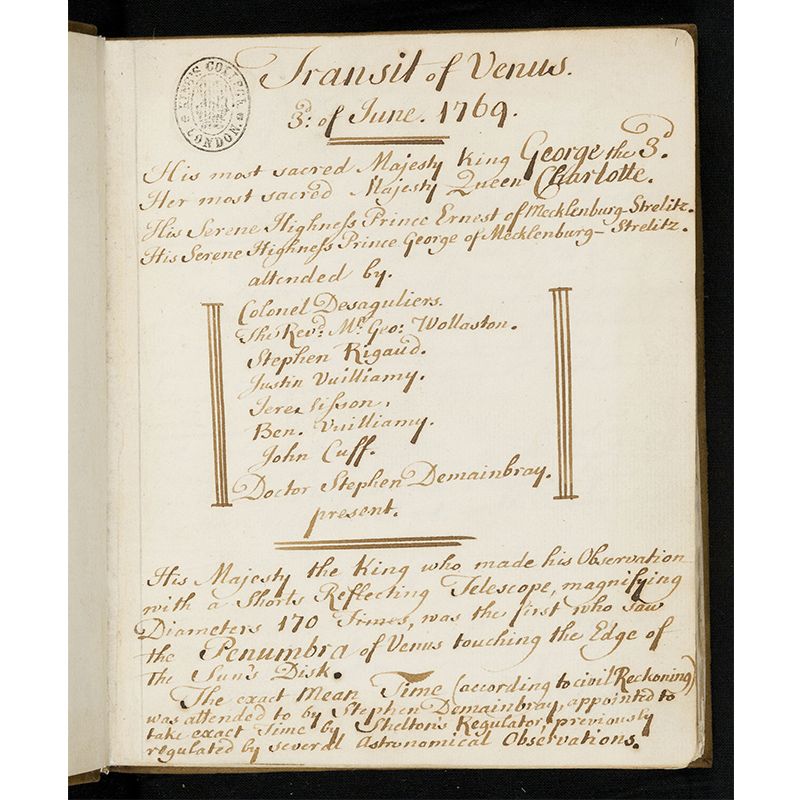 1
KING'S COLLEGE LONDON
Transit of Venus.
3d: of June. 1769.
His most sacred Majesty King George the 3d.
Her most sacred Majesty Queen Charlotte.
His Serene Highneſs Prince Ernest of Mecklenburg-Strelitz.
His Serene Highneſs Prince George of Mecklenburg-Strelitz.
attended by.
Colonel Desaguliers.
The Revd: Mr. Geo: Wollaston.
Stephen Rigaud.
Justin Vuilliamy.
Jere: Siſson.
Ben. Vuilliamy.
John Cuff.
Doctor Stephen Demainbray.
present.
His Majesty the King who made his Observation
with a Shorts Reflecting Telescope, magnifying
Diameters 170 Times, was the first who saw
the Penumbra of Venus touching the Edge of
the Sun's Disk.
The exact Mean Time (according to civil Reckoning)
was attended to by Stephen Demainbray, appointed to
take exact Time by Shelton's Regulator, previously
regulated by several Astronomical Observations.